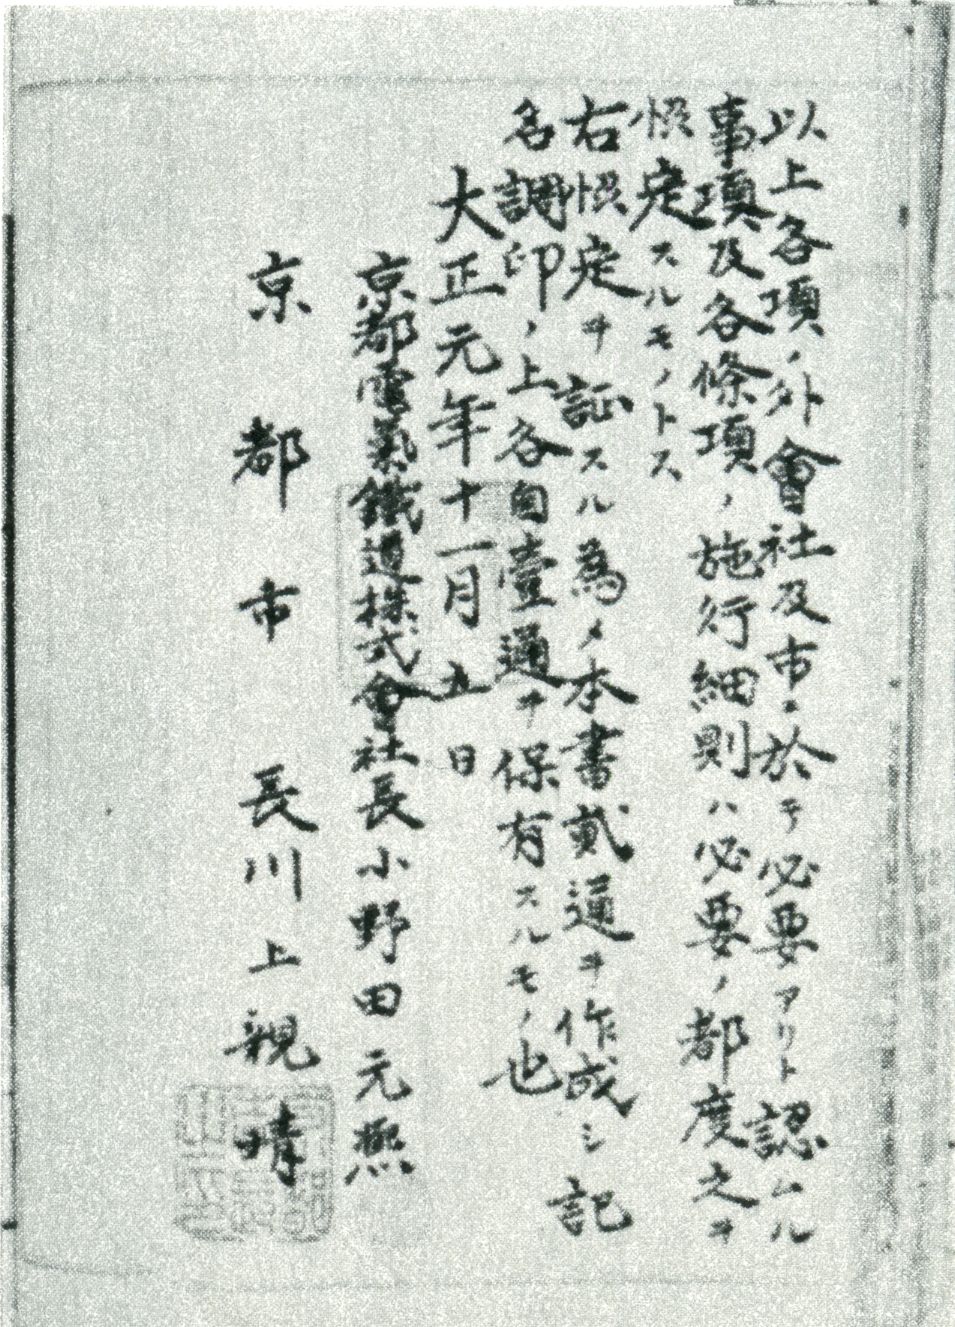 以上各項ノ外會社及市ニ於テ必要アリト認ムル
事項及各條項ノ施行細則ハ必要ノ都度之ヲ
協定スルモノトス
右協定ヲ証スル為メ本書貳通ヲ作成シ記
名調印ノ上各自壹通ヲ保有スルモノ也
大正元年十一月五日
京都電氣鐵道株式會社長小野田元熈
京都市長川上親晴